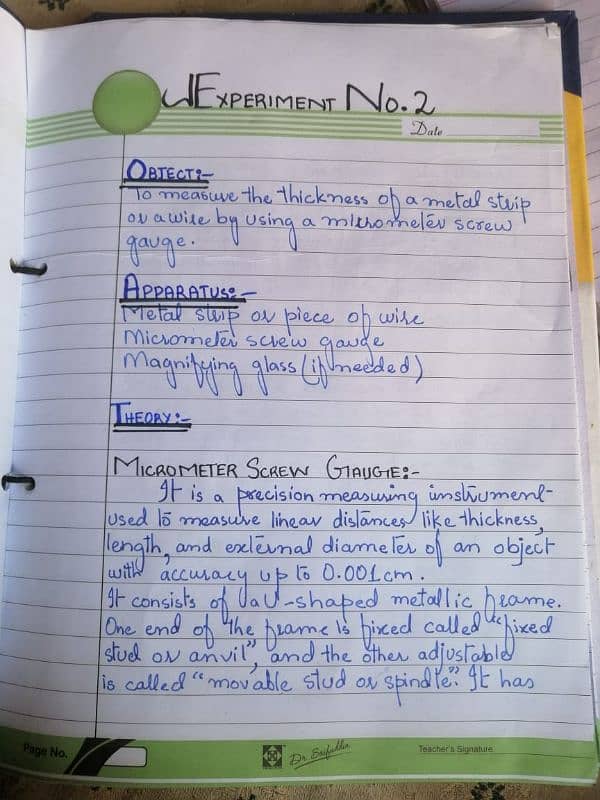 EXPERIMENT NO.2
Date
OBJECT:-
To measure the thickness of a metal strip
or a wire by using a micrometer screw
gauge.
APPARATUS:-
Metal strip or piece of wire
Micrometer screw gauge
Magnifying glass (if needed)
THEORY:-
MICROMETER SCREW GAUGE:-
It is a precision measuring instrument-
used to measure linear distances like thickness,
length, and external diameter of an object
with accuracy up to 0.001cm.
It consists of a U-shaped metallic frame.
One end of the frame is fixed called "fixed
stud or anvil", and the other adjustable
is called "movable stud or spindle". It has
Page No.
Dr. Saifullah
Teacher's Signature